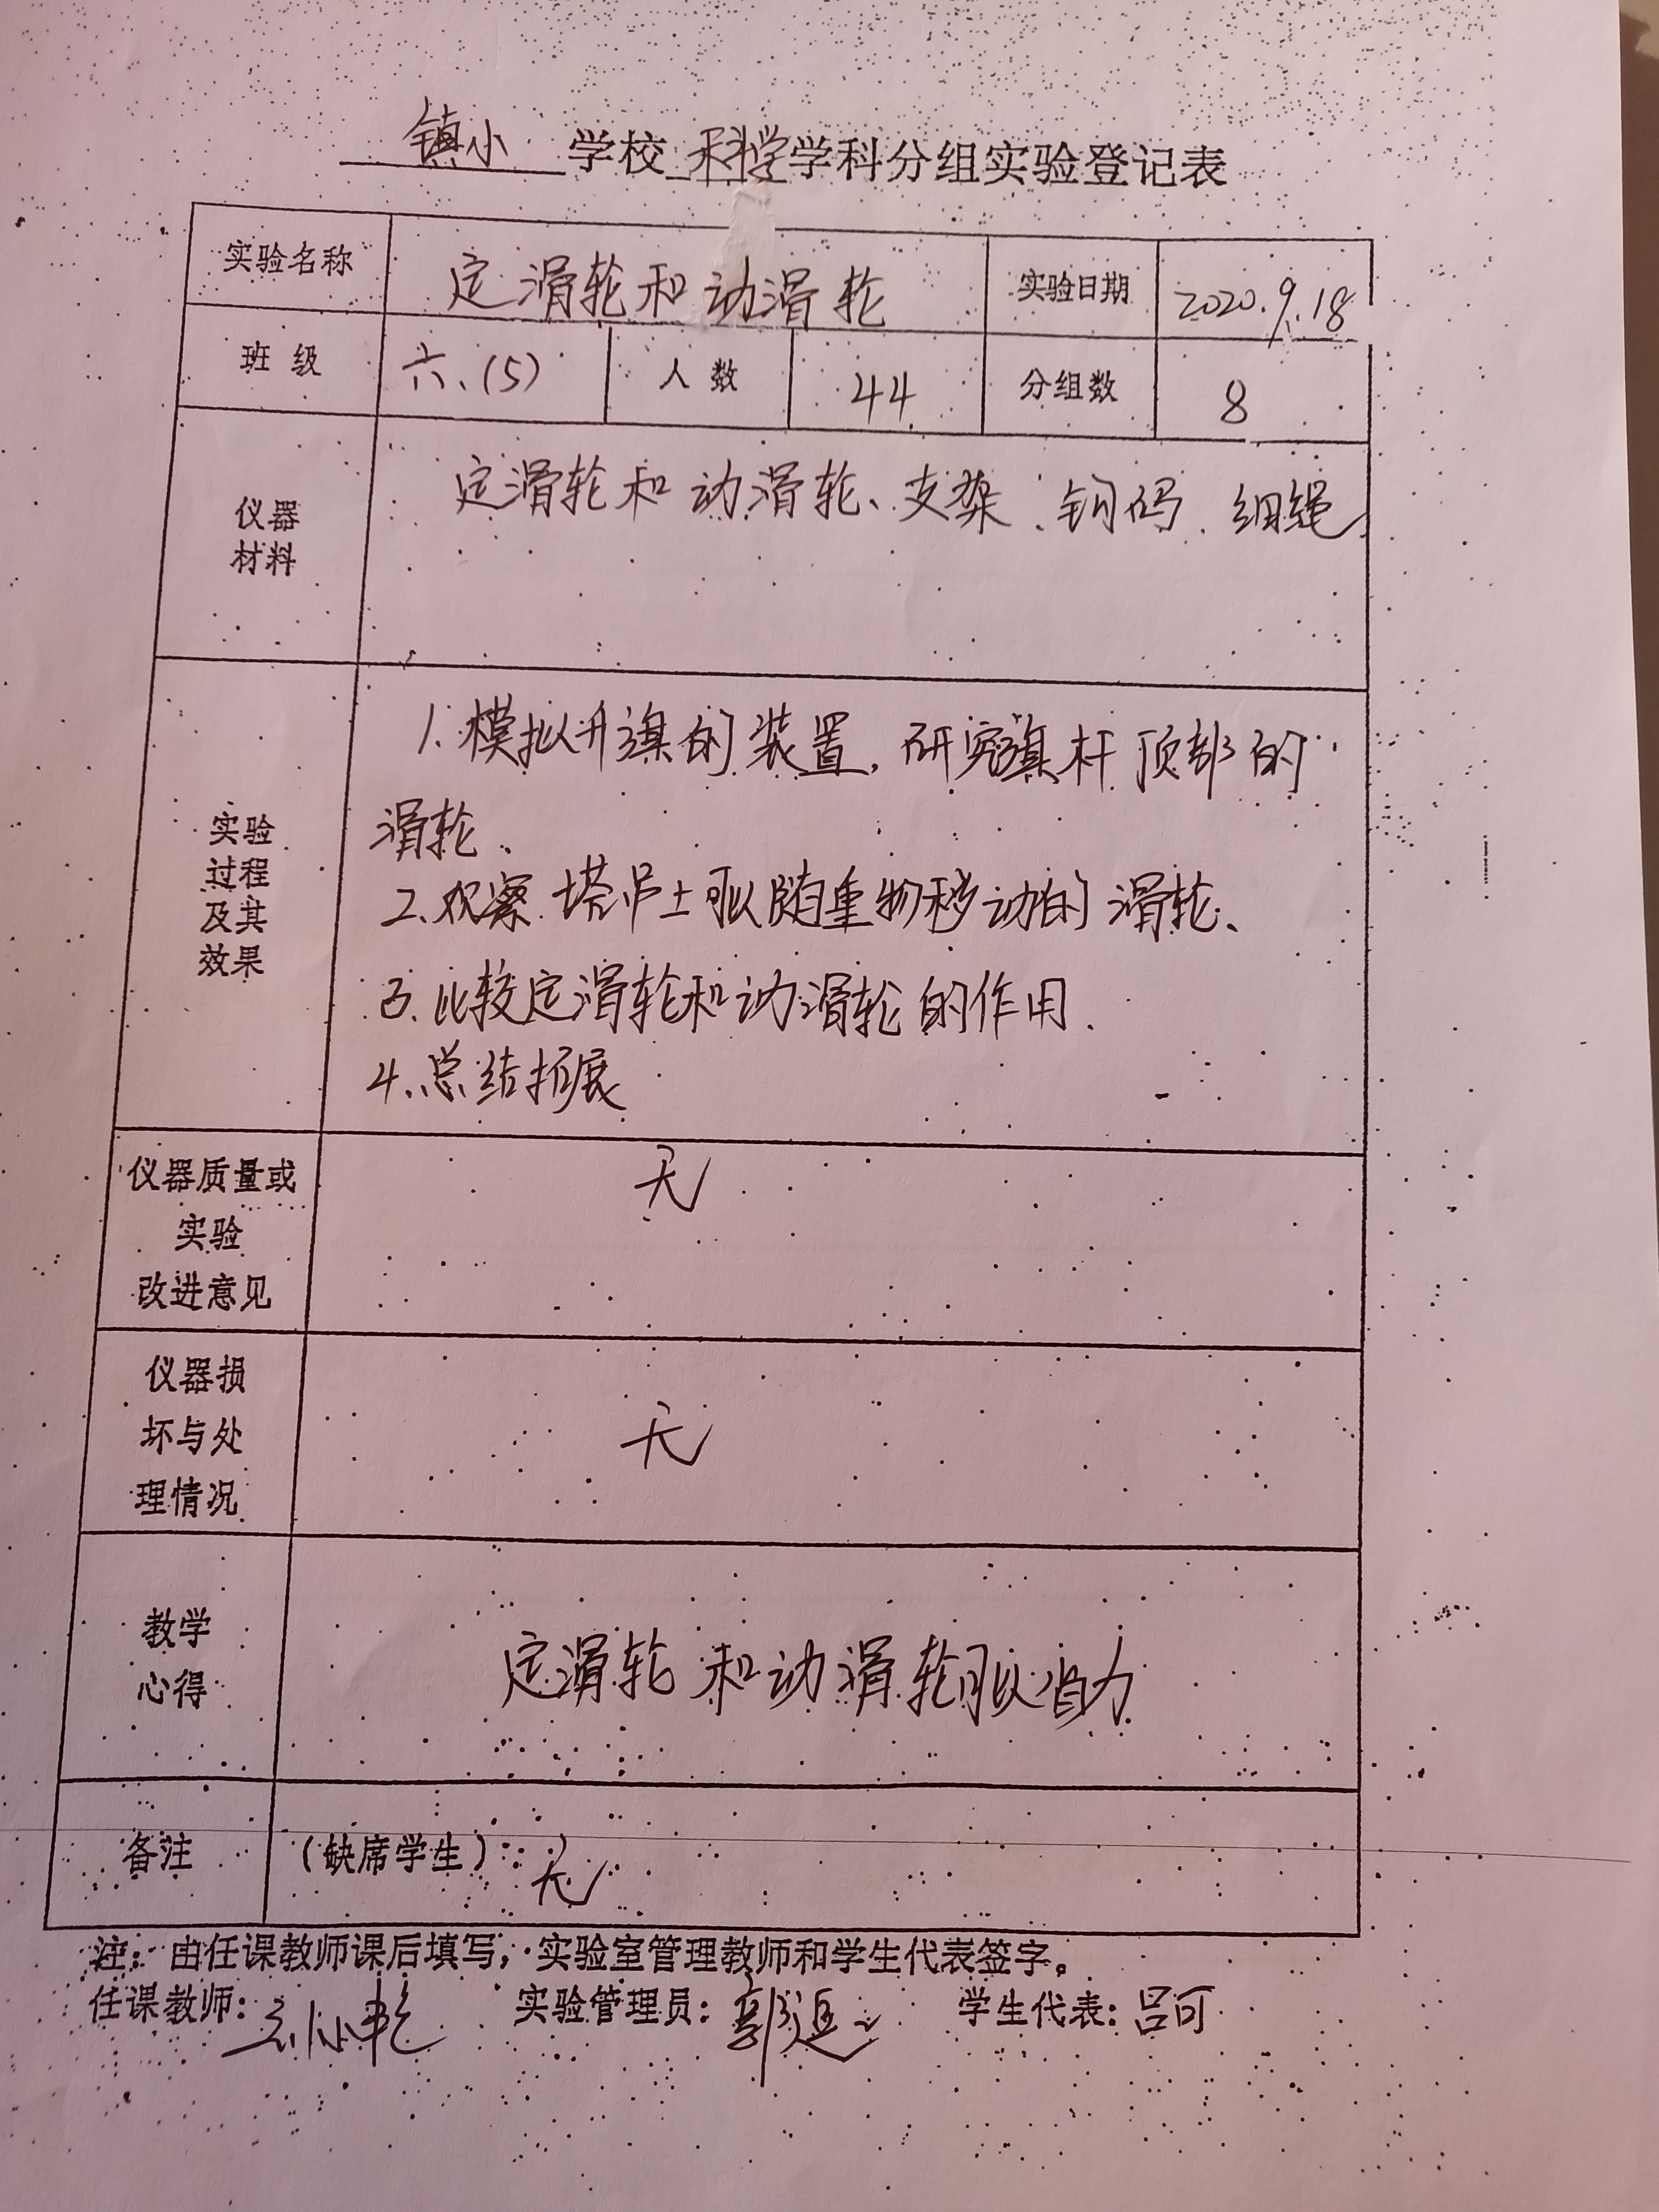 镇小 学校 科学 学科分组实验登记表
实验名称 定滑轮和动滑轮 实验日期 2020.9.18
班 级 六.(5) 人 数 44 分组数 8
仪器
材料
定滑轮和动滑轮、支架、钩码、细绳
实验
过程
及其
效果
1.模拟升旗的装置,研究旗杆顶部的
滑轮、
2.观察塔吊上可以随重物移动的滑轮、
3.比较定滑轮和动滑轮的作用.
4.总结拓展
仪器质量或
实验
改进意见
无
仪器损
坏与处
理情况
无
教学
心得
定滑轮和动滑轮可以省力
备注 (缺席学生): 无
注:由任课教师课后填写,实验室管理教师和学生代表签字。
任课教师: 实验管理员: 学生代表:吕可